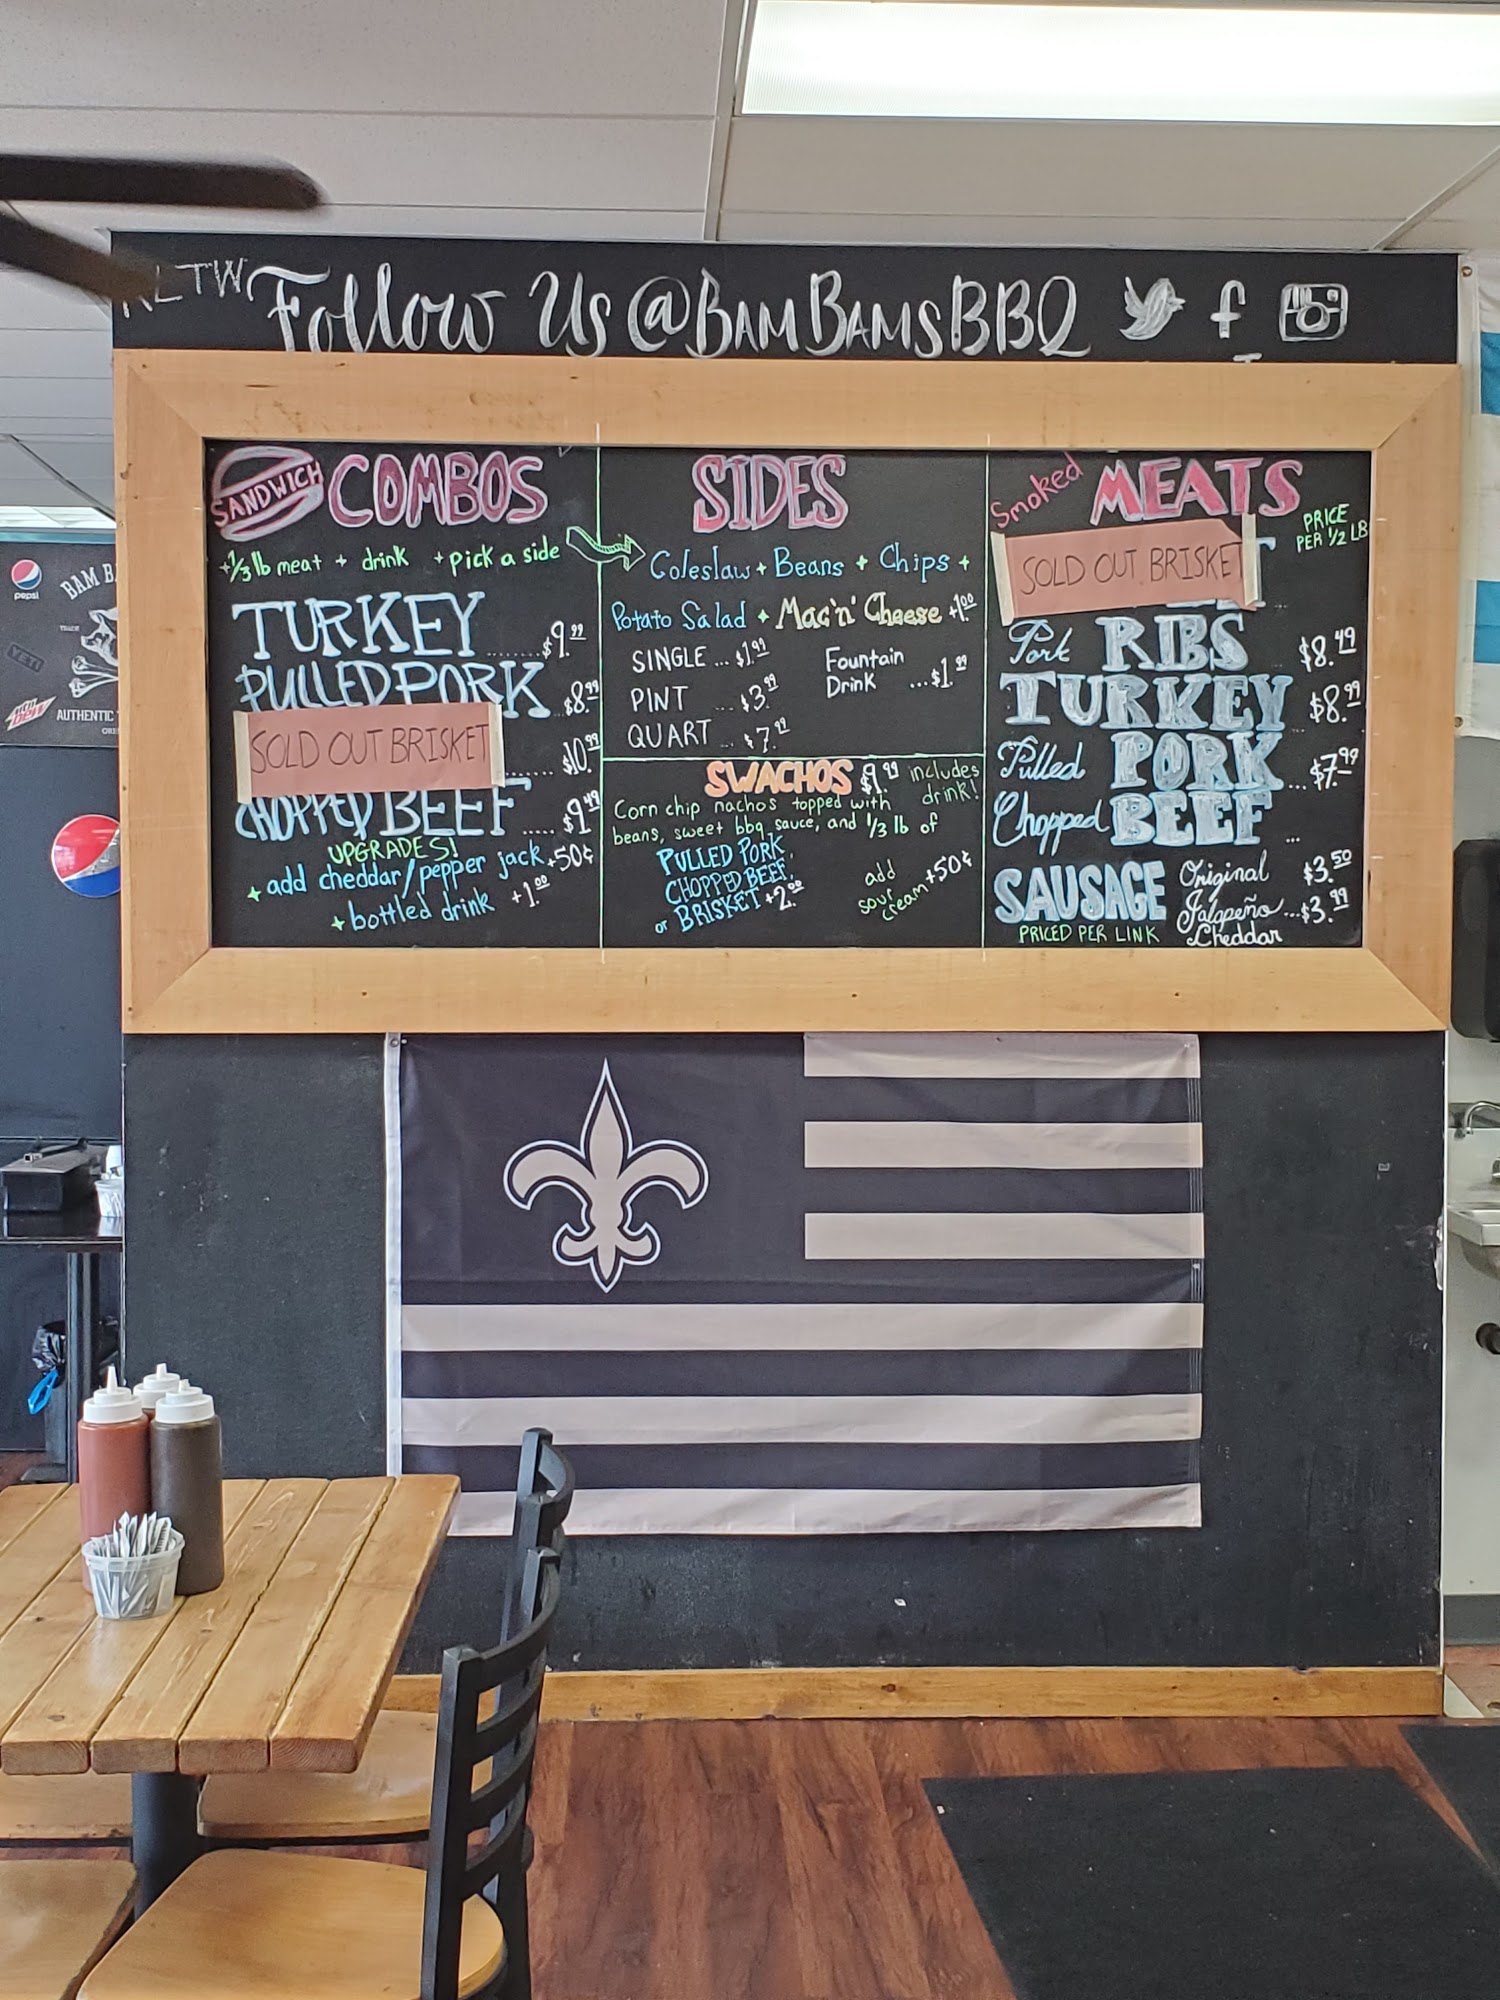 Follow Us @BAMBAMSBBQ
SANDWICH COMBOS
+1/3 lb meat + drink + pick a side
TURKEY ........ $9.99
PULLED PORK .. $8.99
SOLD OUT BRISKET ...... $10.99
CHOPPED BEEF ..... $9.49
UPGRADES!
+ add cheddar/pepper jack +50¢
+ bottled drink +1.00
SIDES
Coleslaw + Beans + Chips +
Potato Salad + Mac'n' Cheese +1.00
SINGLE ... $1.99
PINT ... $3.99
QUART ... $7.99
Fountain
Drink ...$1.99
SWACHOS $9.99 includes
drink!
Corn chip nachos topped with
beans, sweet bbq sauce, and 1/3 lb of
PULLED PORK,
CHOPPED BEEF,
or BRISKET +2.00
add
sour
cream +50¢
Smoked MEATS
PRICE
PER 1/2 LB
SOLD OUT BRISKET
Pork RIBS $8.49
TURKEY $8.99
Pulled PORK ... $7.99
Chopped BEEF ...
SAUSAGE
PRICED PER LINK
Original $3.50
Jalapeño ...$3.99
Cheddar
pepsi
BAM B
YETI
DEW
AUTHENTIC